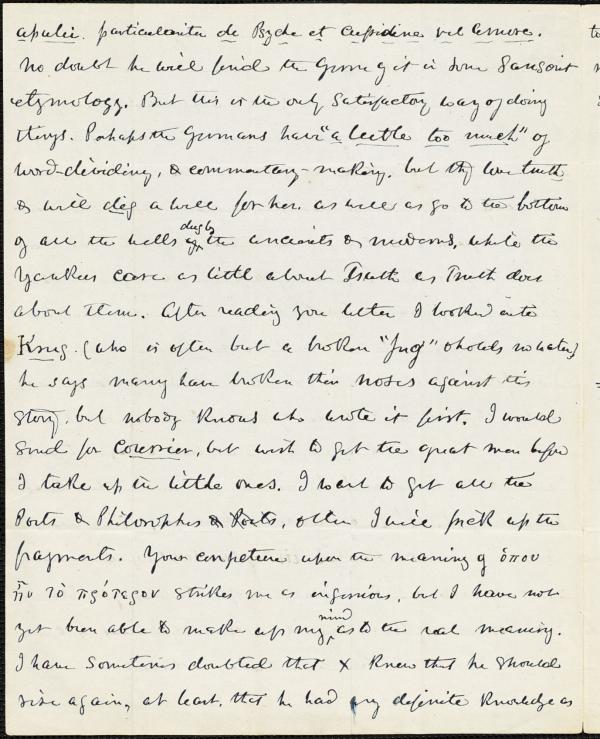 Apulii. particulariter de Psyche et Cupidine vel Amore.
No doubt he will find the germ of it in some Sanscrit
etymology. But this is the only satisfactory way of doing
things. Perhaps the Germans have "a leetle too much" of
word-dividing, & commentary-making. but they love truth
& will dig a well for her. as well as go to the bottom
of all the wells dug by the ancients & moderns, while the
Yankees care as little about Truth as Truth does
about them. After reading your letter I looked into
Krug. (who is often but a broken "Jug" & holds no water)
he says many have broken their noses against this
story, but nobody knows who wrote it first. I would
send for Courrier, but wish to get the great men before
I take up the little ones. I want to get all the
Poets & Philosophes & Poets, often I will pick up the
fragments. Your conjecture upon the meaning of ὁπου
ἦν τὸ πρότερον strikes me as ingenious, but I have not
yet been able to make up my mind as to the real meaning.
I have sometimes doubted that X knew that he should
rise again, at least, that he had any definite knowledge as